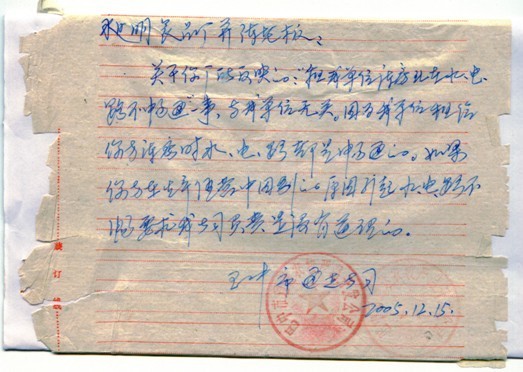 明食品厂并陈老板：
关于你厂所反映的："租我单位该房现在水、电、
路不畅通"事，与我单位无关。因为我单位租给
你方该房时水、电、路都是畅通的。如果
你方在生产经营中因别的原因引起水电路不
畅要求我公司负责是没有道理的。
市通达公司
2005.12.15.
装订线